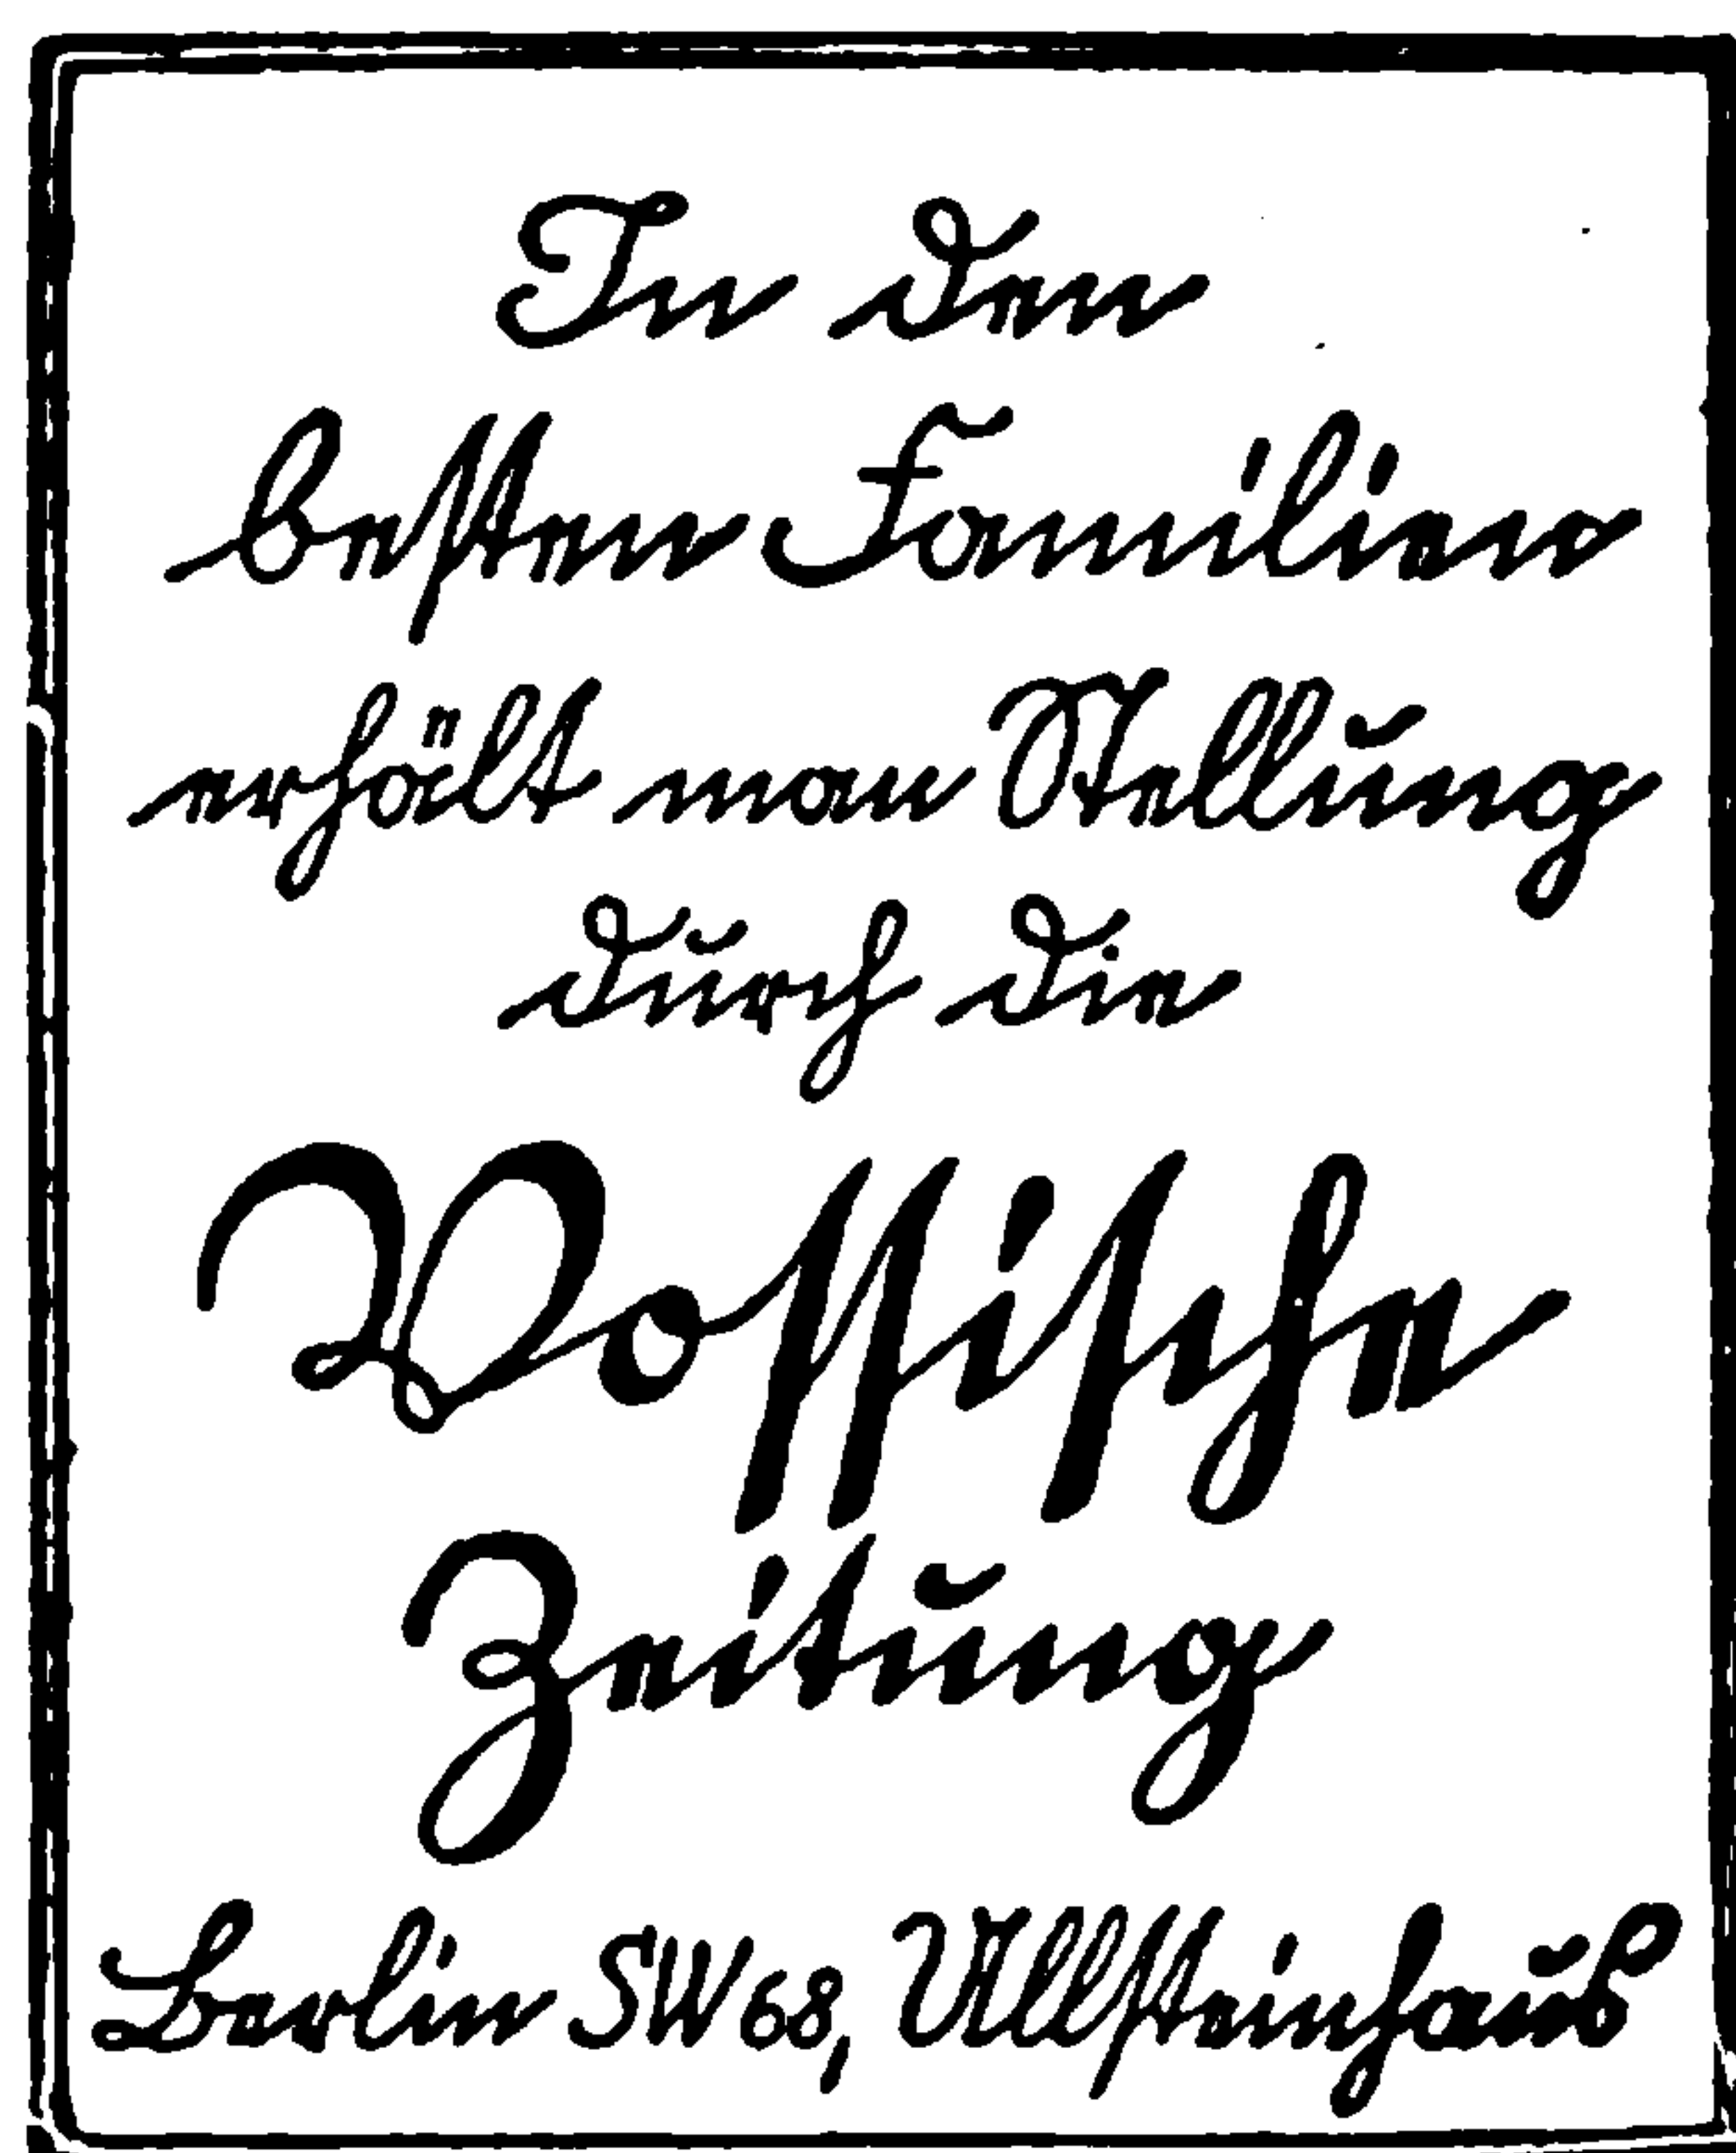 In den
besten Familien
erhält man Stellung
durch die
Vossische
Zeitung
Berlin SW 68, Ullsteinhaus